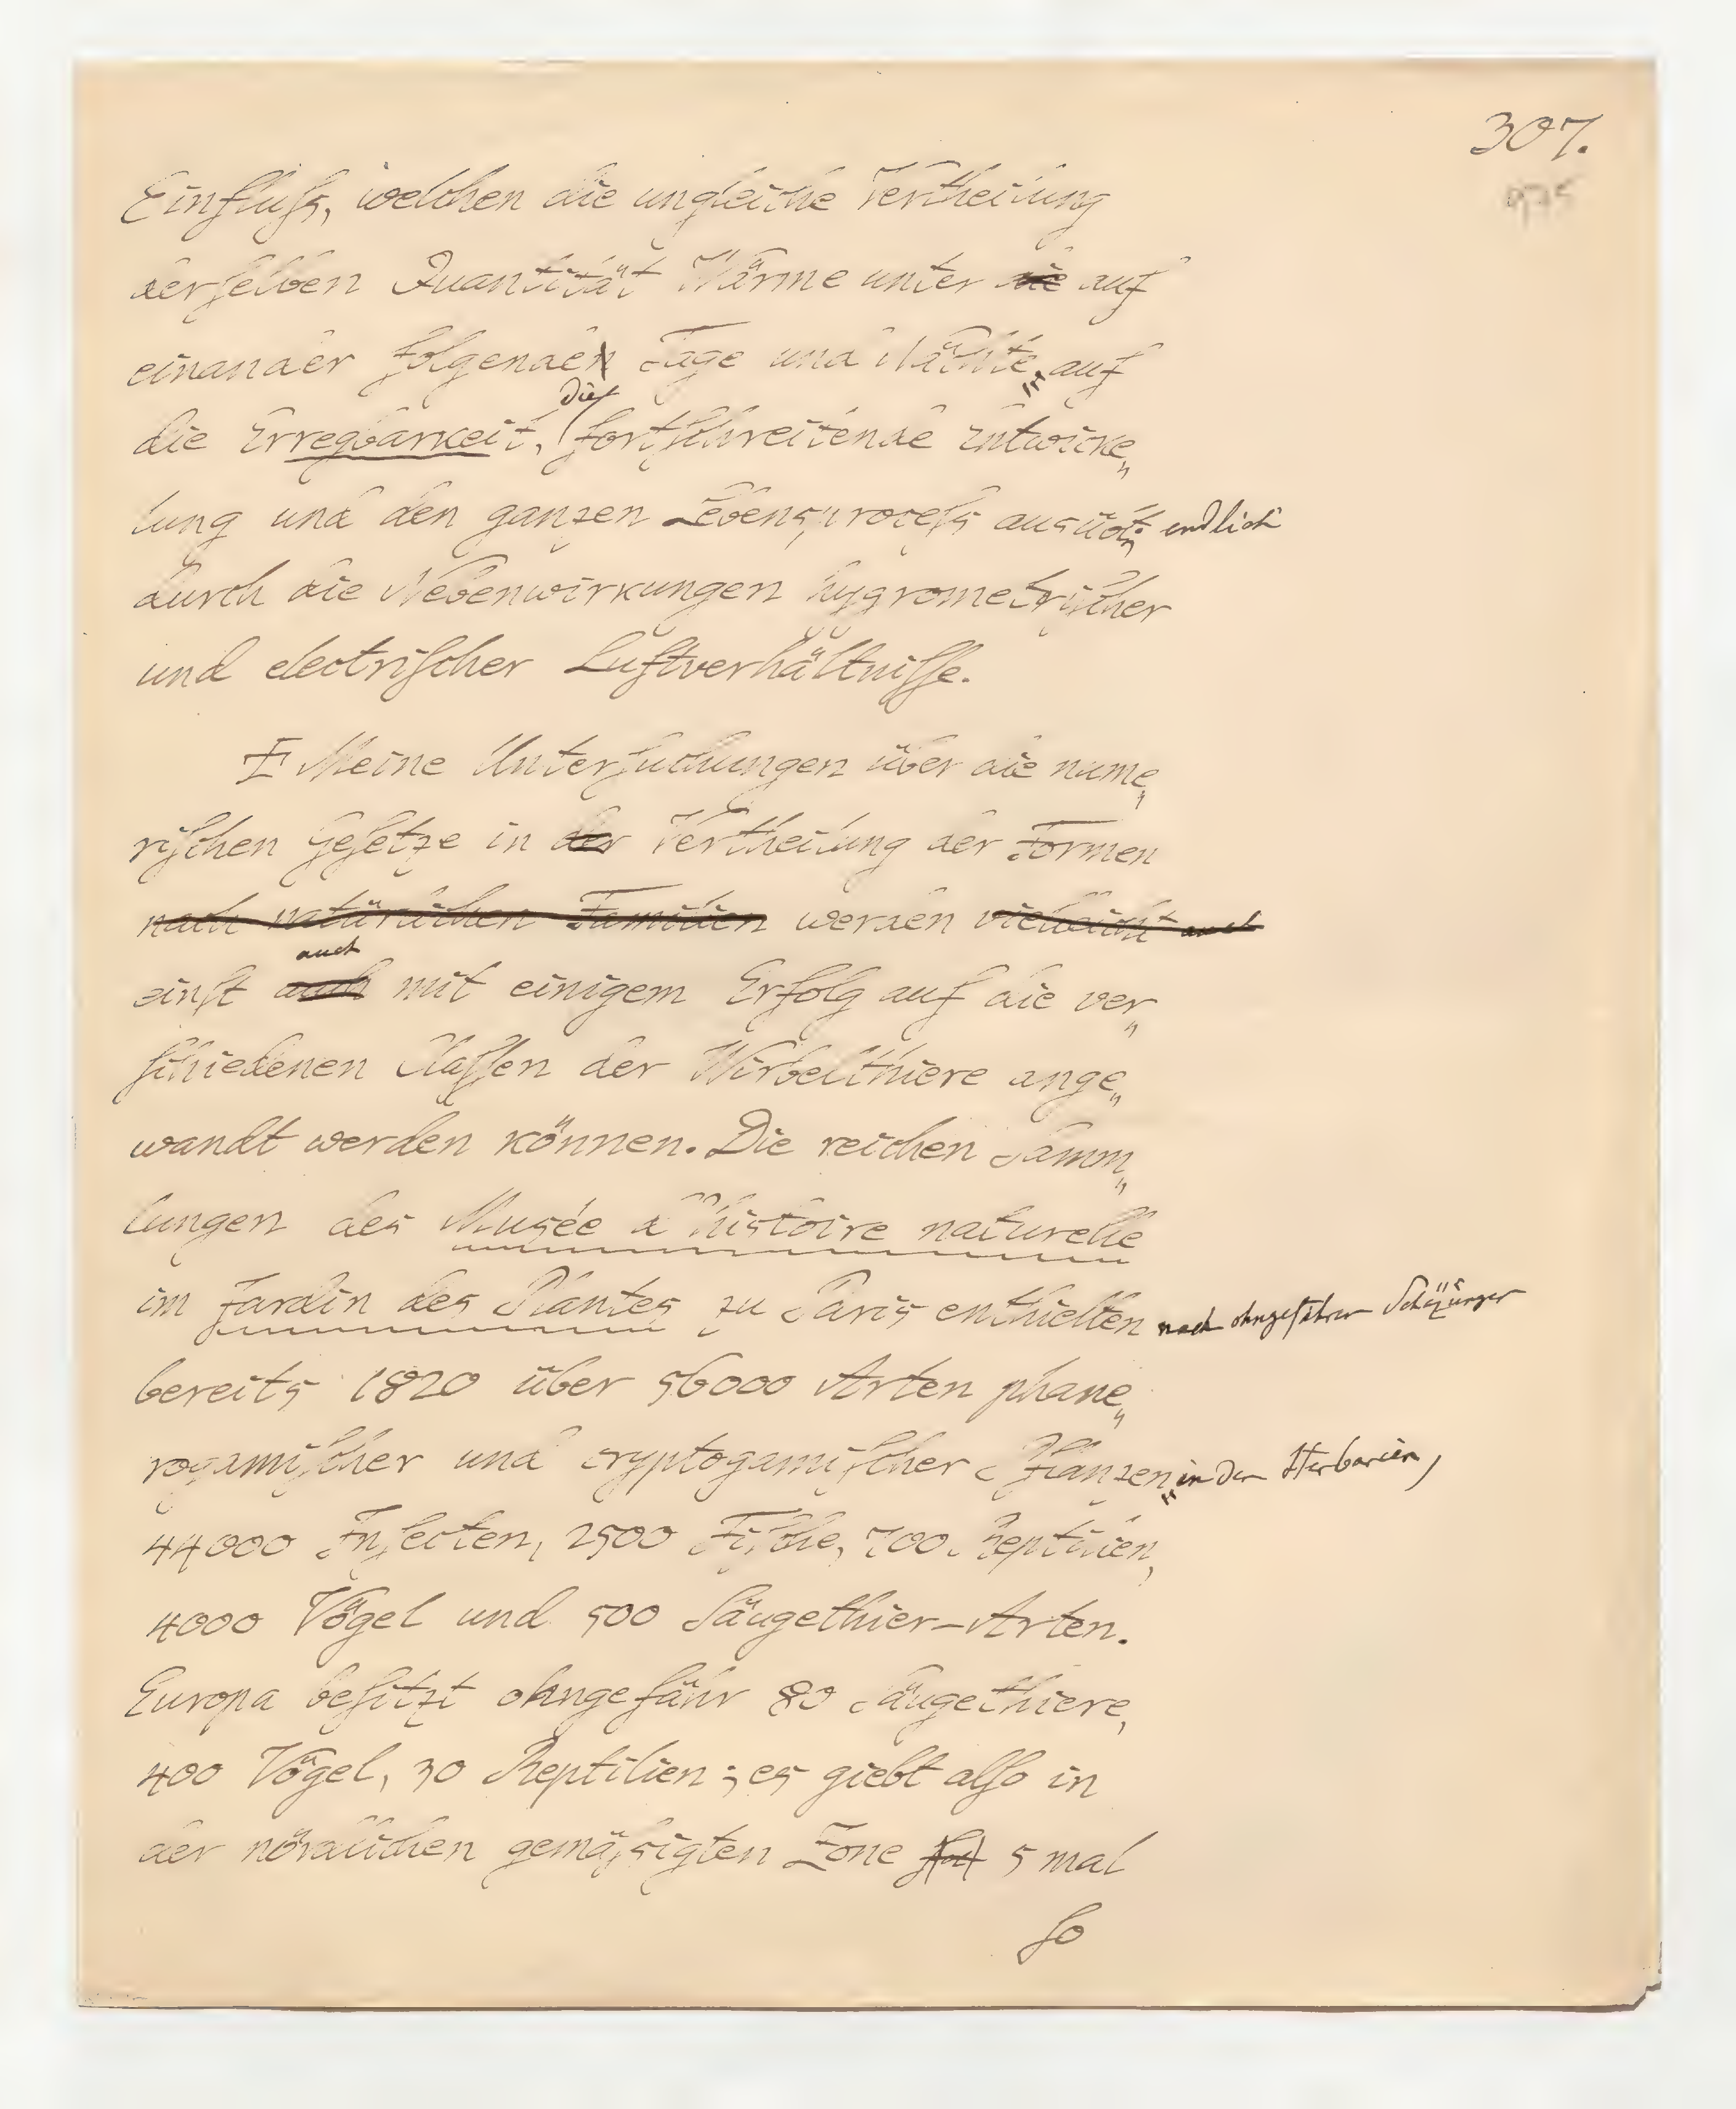 307.
975
Einfluſs, welchen die ungleiche Vertheilung
derſelben Quantität Wärme unter die auf
einander folgenden Tage und Nächte, auf
die
die Erregbarkeit, fortſchreitende Entwicke„
lung und den ganzen Lebensproceſs ausübt; endlich
durch die Nebenwirkungen hygrometriſcher
und electriſcher Luftverhältniſſe.
Meine Unterſuchungen über die nume„
riſchen Geſetze in der Vertheilung der Formen
nach natürlichen Familien werden vielleicht auch
auch
einſt auch mit einigem Erfolg auf die ver„
ſchiedenen Klaſſen der Wirbelthiere ange„
wandt werden können. Die reichen Samm„
lungen des Musée d'histoire naturelle
im Jardin des Plantes zu Paris enthielten nach ohngefähren Schäzungen
bereits 1820 über 56000 Arten phane„
rogamiſcher und cryptogamiſcher Pflanzen in den Herbarien,
44000 Inſecten, 2500 Fiſche, 700 Reptilien,
4000 Vögel und 500 Säugethier-Arten.
Europa beſitzt ohngefähr 80 Säugethiere,
400 Vögel, 30 Reptilien; es giebt alſo in
der nördlichen gemäſsigten Zone 5 mal
ſo